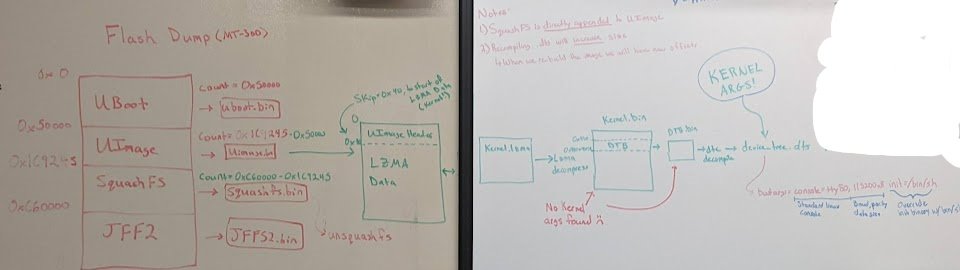 Flash Dump (MT-300)
0x0
UBoot
count = 0x50000
→ uboot.bin
0x50000
UImage
count = 0x1C9245-0x50000
→ Uimage.bin
0x1C9245
SquashFS
count = 0xC60000-0x1C9245
→ Squashfs.bin
0xC60000
JFF2
→ JFFS2.bin
unsquashfs
Skip=0x40, to start of
LZMA Data
(Kernel!)
0
UImage Header
LZMA
Data
Notes:
1) SquashFS is directly appended to UImage
2) Recompiling .dtb will increase size
↳ When we rebuild the image we will have new offsets
KERNEL
ARGS!
Kernel.lzma
→ Lzma
decompress
Kernel.bin
DTB
No Kernel
args found :(
DTB.bin
→ dtc → device_tree.dts
bootargs = console=ttyS0,115200n8 init=/bin/sh
Standard linux
console
Baud, parity
data size
Override
init binary w/ bin/sh